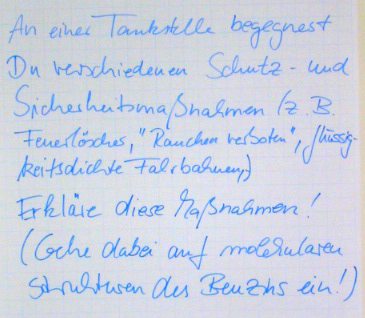 An einer Tankstelle begegnest
Du verschiedenen Schutz- und
Sicherheitsmaßnahmen (z.B.
Feuerlöscher, "Rauchen verboten", flüssig-
keitsdichte Fahrbahnen)
Erkläre diese Maßnahmen!
(Gehe dabei auf molekularen
Strukturen des Benzins ein!)